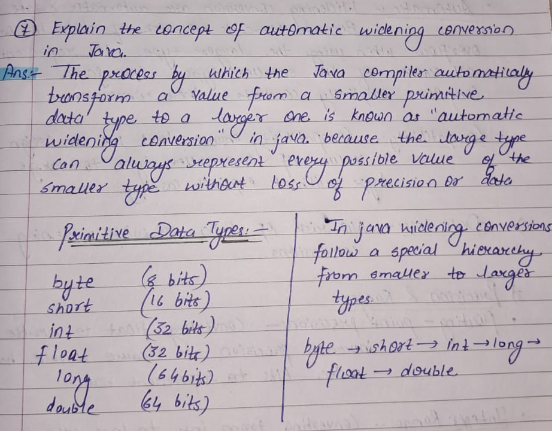 (7) Explain the concept of automatic widening conversion
in Java.
Ans:- The process by which the Java compiler automatically
transform a value from a smaller primitive
data type to a larger one is known as "automatic
widening conversion" in java. because the large type
can always represent every possible value of the
smaller type without loss of precision or data
Primitive Data Types:-
byte (8 bits)
short (16 bits)
int (32 bits)
float (32 bits)
long (64 bits)
double (64 bits)
In java widening conversions
follow a special hierarchy
from smaller to larger
types.
byte → short → int → long →
float → double